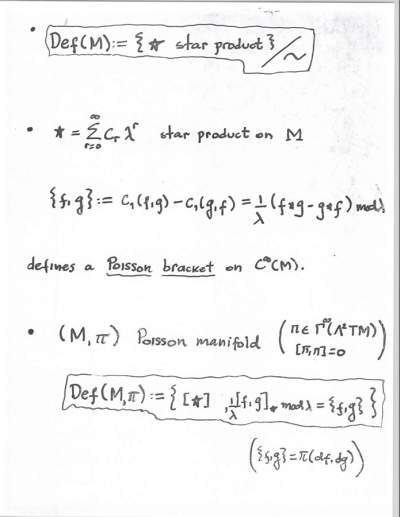 • Def(M) := { ★ star product } / ~
• ★ = ∑_{r=0}^{∞} C_r λ^r star product on M
{f,g} := C₁(f,g) − C₁(g,f) = 1/λ (f★g − g★f) mod λ
defines a Poisson bracket on C^∞(M).
• (M, π) Poisson manifold ( π ∈ Γ^∞(Λ²TM)
[π,π] = 0 )
Def(M,π) := { [★] , 1/λ [f,g]_★ mod λ = {f,g} }
( {f,g} = π(df,dg) )